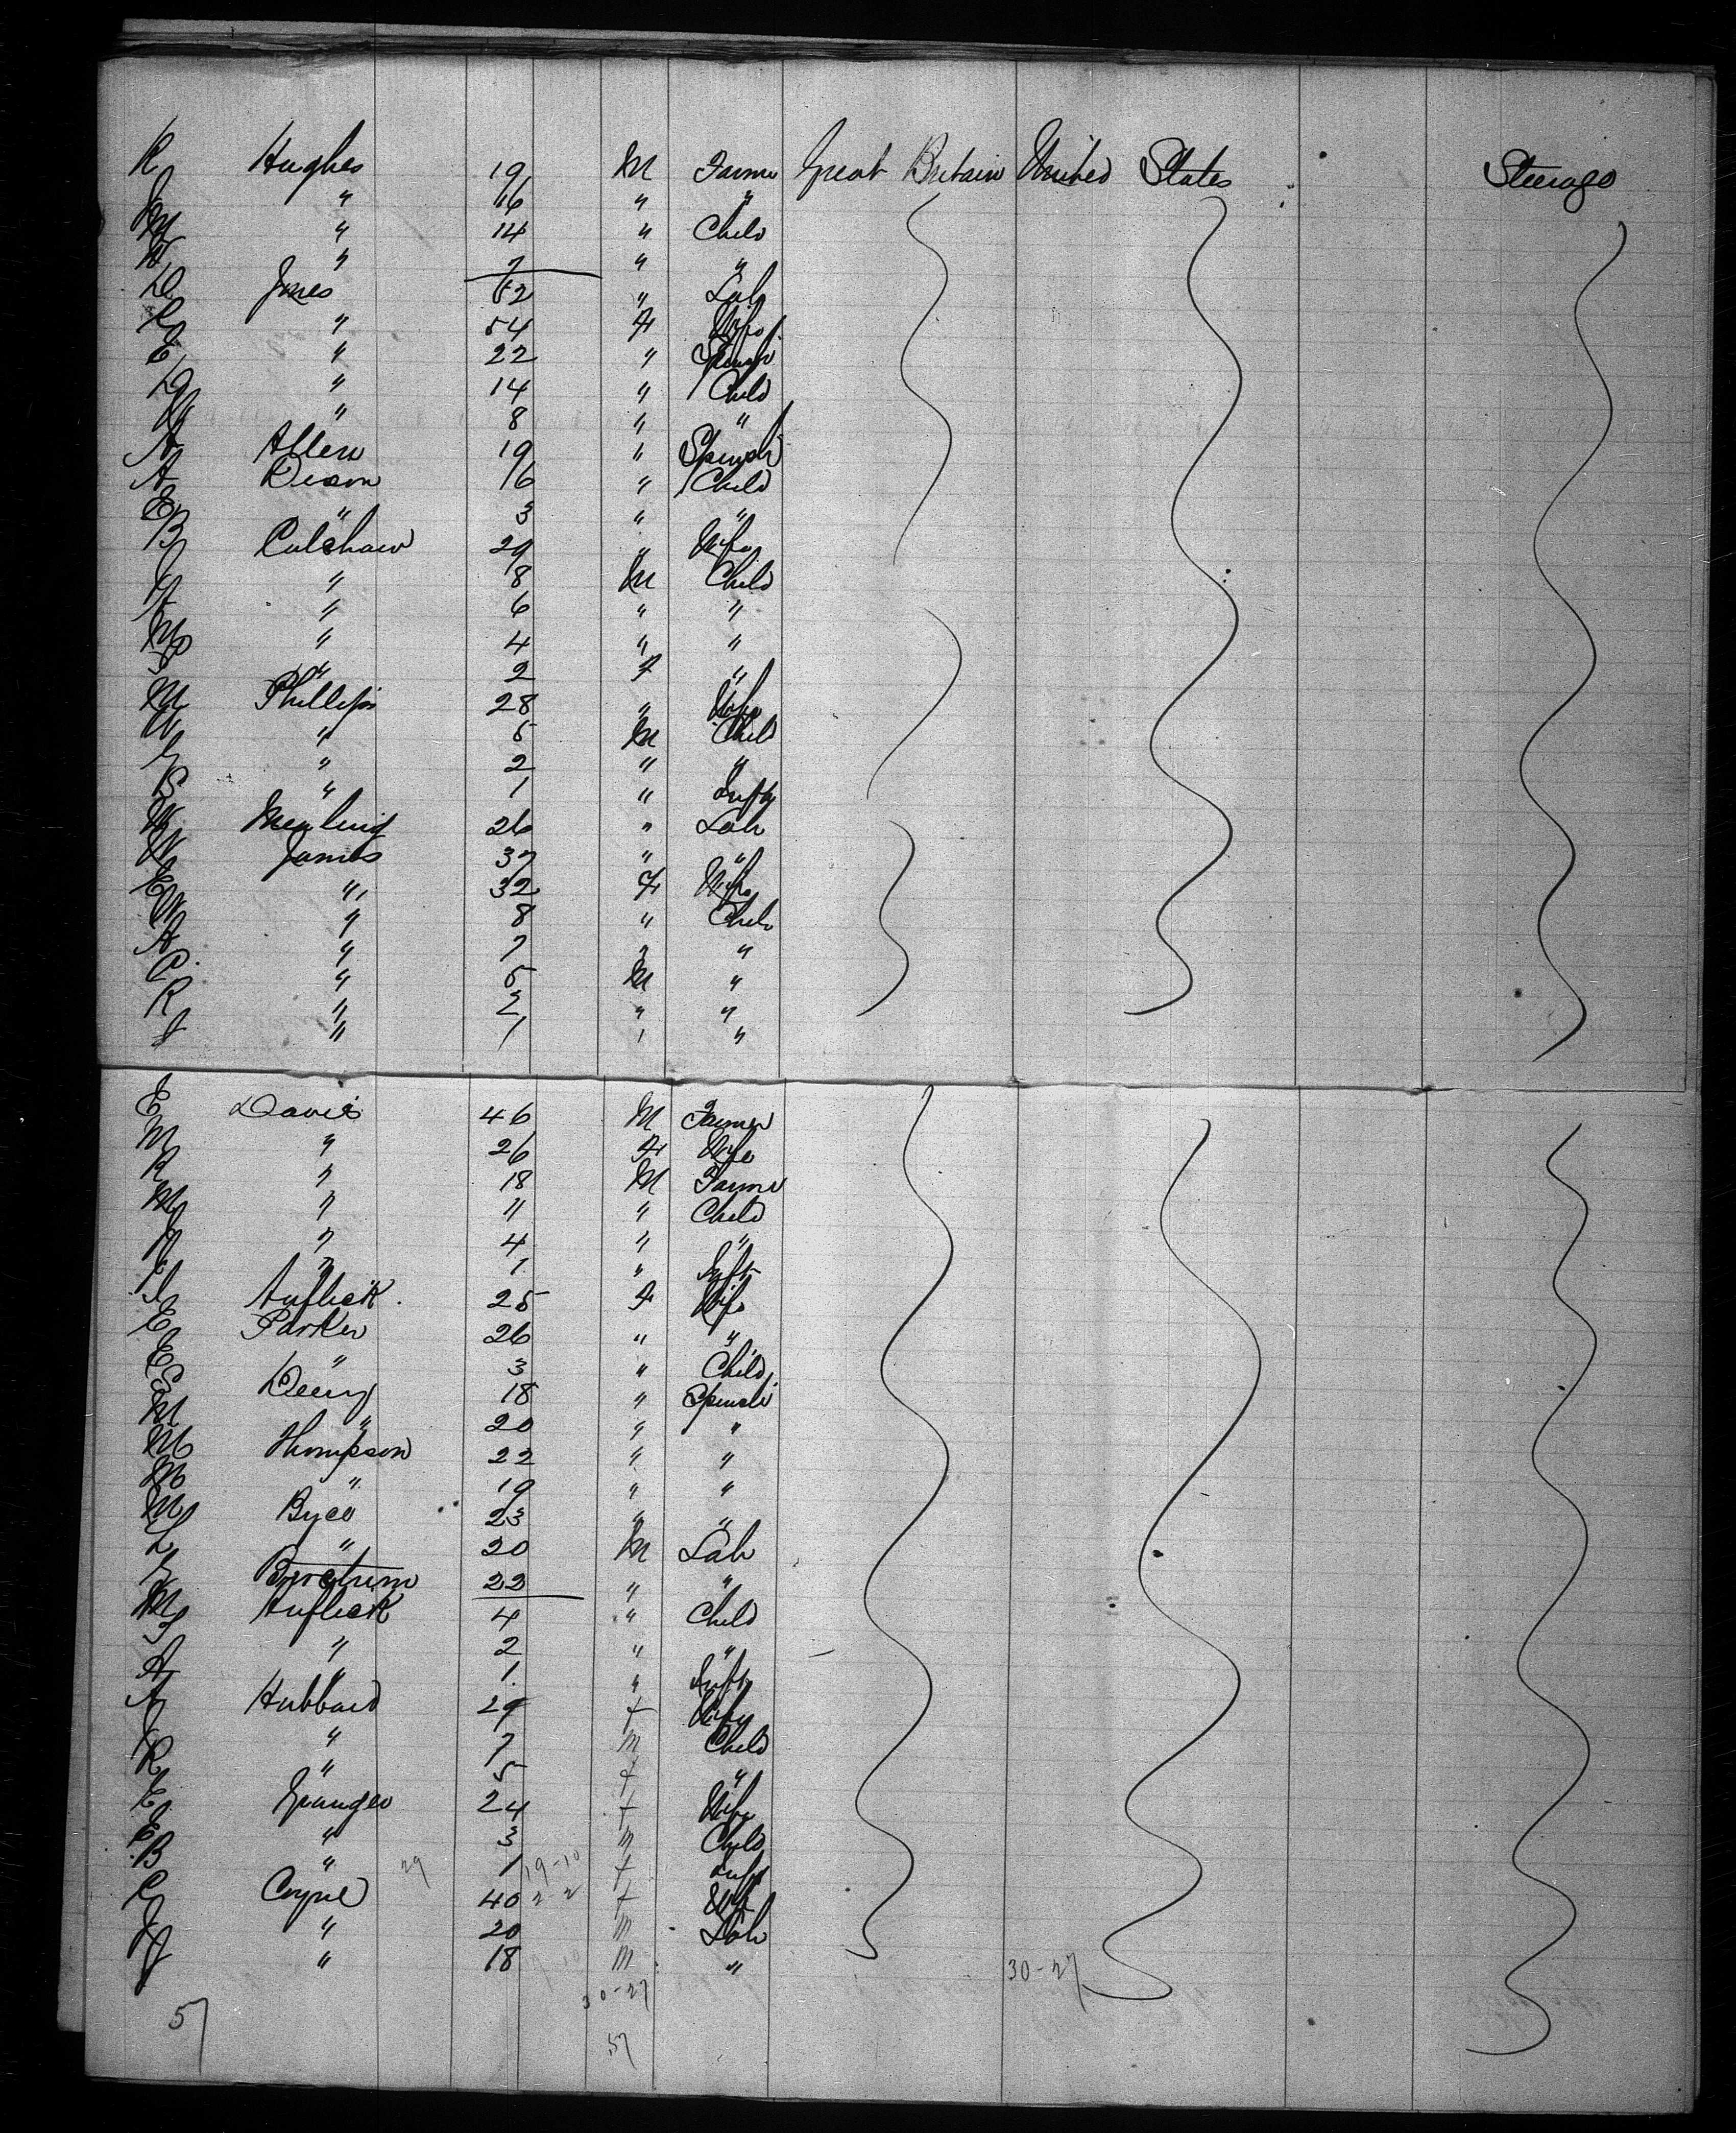 R Hughes 19 M Farmer Great Britain United States Steerage
J " 16 " "
M " 14 " Child
" 7 " "
D Jones 52 " Lab
" 54 F Wife
E " 22 " Spinster
D " 14 " Child
" 8 " "
A Allen 19 " Spinster
A Dixon 16 " Child
E " 3 " "
B Culshaw 29 " Wife
J " 8 M Child
" 6 " "
M " 4 " "
" 2 F "
M Phillips 28 " Wife
W " 5 M Child
G " 2 " "
B " 1 " Inft
W 26 " Lab
W James 37 " "
E " 32 F Wife
M " 8 " Child
A " 7 " "
C. " 5 M "
R " 2 " "
J " 1 " "
E Davis 46 M Farmer
M " 26 F Wife
R " 18 M Farmer
M " 11 " Child
" 4 " "
" 1 " Inft
25 F Wife
E Parker 26 " "
E " 3 " Child
E 18 " Spinster
M " 20 " "
M Thompson 22 " "
M " 19 " "
M Byco 23 " "
L " 20 M Lab
G 22 " "
M 4 " Child
" 2 " "
A " 1 " Inft
A Hubbard 29 f Wife
J " 7 m Child
R " 5 f "
E Grunges 24 f Wife
E " 3 m Child
B " 29 1 19-10 f Inft
C Coyne 40 2-2 f Wife
J " 20 m Lab
J " 18 m "
30-27 30-27
57 57